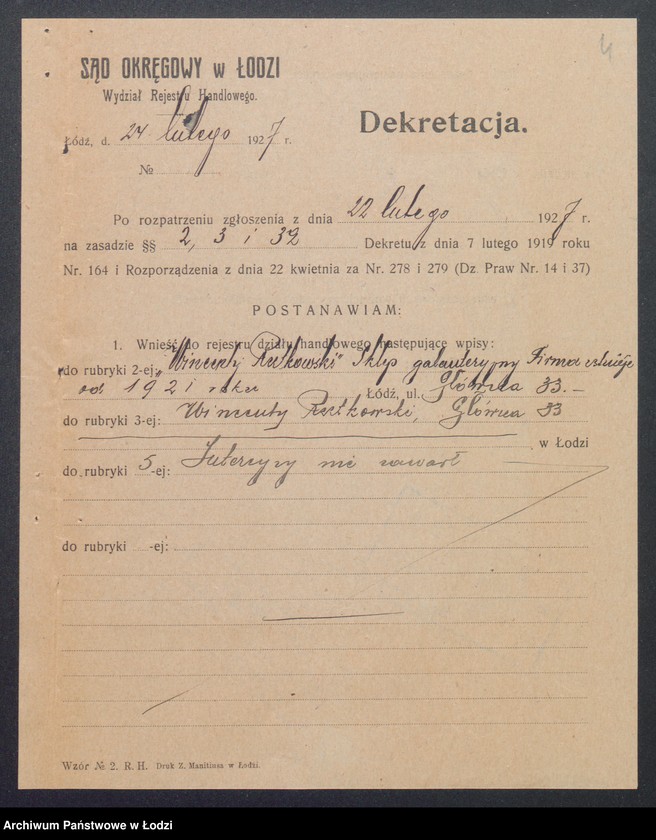 4
SĄD OKRĘGOWY w ŁODZI
Wydział Rejestru Handlowego.
Łódź, d. 24 lutego 1927 r.
Dekretacja.
№
Po rozpatrzeniu zgłoszenia z dnia 22 lutego 1927 r.
na zasadzie §§ 2, 3 i 32 Dekretu z dnia 7 lutego 1919 roku
Nr. 164 i Rozporządzenia z dnia 22 kwietnia za Nr. 278 i 279 (Dz. Praw Nr. 14 i 37)
POSTANAWIAM:
1. Wnieść do rejestru działu handlowego następujące wpisy:
do rubryki 2-ej: "Wincenty Rutkowski" Sklep galanteryjny Firma istnieje
od 1921 roku Łódź, ul. Główna 33.-
do rubryki 3-ej: Wincenty Rutkowski, Główna 33
, w Łodzi
do rubryki 5-ej: Intercyzy nie zawarł
do rubryki -ej:
Wzór № 2. R. H. Druk Z. Manitiusa w Łodzi.
Archiwum Państwowe w Łodzi